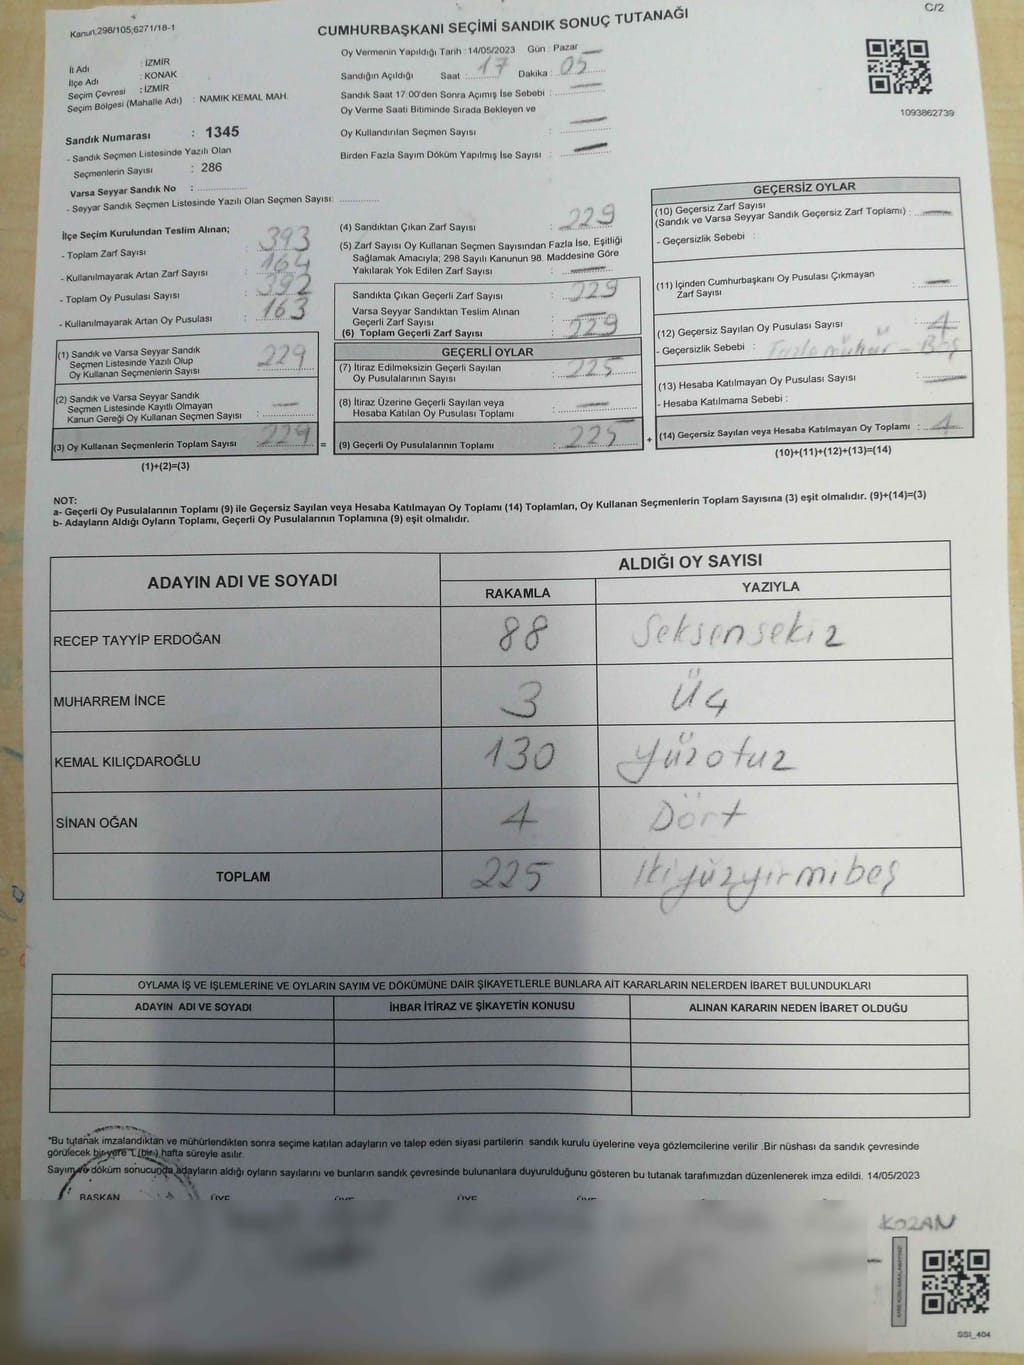 C/2
Kanun,298/105;6271/18-1
CUMHURBAŞKANI SEÇİMİ SANDIK SONUÇ TUTANAĞI
Oy Vermenin Yapıldığı Tarih : 14/05/2023 Gün : Pazar
İl Adı : İZMİR
İlçe Adı : KONAK
Seçim Çevresi : İZMİR
Seçim Bölgesi (Mahalle Adı) : NAMIK KEMAL MAH.
Sandığın Açıldığı Saat : 17 Dakika : 05
Sandık Saat 17:00'den Sonra Açımış İse Sebebi :
Oy Verme Saati Bitiminde Sırada Bekleyen ve
Oy Kullandırılan Seçmen Sayısı :
Birden Fazla Sayım Döküm Yapılmış İse Sayısı :
1093862739
Sandık Numarası : 1345
- Sandık Seçmen Listesinde Yazılı Olan
Seçmenlerin Sayısı : 286
Varsa Seyyar Sandık No :
- Seyyar Sandık Seçmen Listesinde Yazılı Olan Seçmen Sayısı:
İlçe Seçim Kurulundan Teslim Alınan;
- Toplam Zarf Sayısı : 393
- Kullanılmayarak Artan Zarf Sayısı : 164
- Toplam Oy Pusulası Sayısı : 392
- Kullanılmayarak Artan Oy Pusulası : 163
(1) Sandık ve Varsa Seyyar Sandık
Seçmen Listesinde Yazılı Olup
Oy Kullanan Seçmenlerin Sayısı : 229
(2) Sandık ve Varsa Seyyar Sandık
Seçmen Listesinde Kayıtlı Olmayan
Kanun Gereği Oy Kullanan Seçmen Sayısı :
(3) Oy Kullanan Seçmenlerin Toplam Sayısı : 229 =
(1)+(2)=(3)
(4) Sandıktan Çıkan Zarf Sayısı : 229
(5) Zarf Sayısı Oy Kullanan Seçmen Sayısından Fazla İse, Eşitliği
Sağlamak Amacıyla; 298 Sayılı Kanunun 98. Maddesine Göre
Yakılarak Yok Edilen Zarf Sayısı :
Sandıkta Çıkan Geçerli Zarf Sayısı : 229
Varsa Seyyar Sandıktan Teslim Alınan
Geçerli Zarf Sayısı :
(6) Toplam Geçerli Zarf Sayısı : 229
GEÇERLİ OYLAR
(7) İtiraz Edilmeksizin Geçerli Sayılan
Oy Pusulalarının Sayısı : 225
(8) İtiraz Üzerine Geçerli Sayılan veya
Hesaba Katılan Oy Pusulası Toplamı :
(9) Geçerli Oy Pusulalarının Toplamı : 225 +
GEÇERSİZ OYLAR
(10) Geçersiz Zarf Sayısı
(Sandık ve Varsa Seyyar Sandık Geçersiz Zarf Toplamı) :
- Geçersizlik Sebebi :
(11) İçinden Cumhurbaşkanı Oy Pusulası Çıkmayan
Zarf Sayısı :
(12) Geçersiz Sayılan Oy Pusulası Sayısı : 4
- Geçersizlik Sebebi : Fazla mühür - Boş
(13) Hesaba Katılmayan Oy Pusulası Sayısı :
- Hesaba Katılmama Sebebi :
(14) Geçersiz Sayılan veya Hesaba Katılmayan Oy Toplamı : 4
(10)+(11)+(12)+(13)=(14)
NOT:
a- Geçerli Oy Pusulalarının Toplamı (9) ile Geçersiz Sayılan veya Hesaba Katılmayan Oy Toplamı (14) Toplamları, Oy Kullanan Seçmenlerin Toplam Sayısına (3) eşit olmalıdır. (9)+(14)=(3)
b- Adayların Aldığı Oyların Toplamı, Geçerli Oy Pusulalarının Toplamına (9) eşit olmalıdır.
ADAYIN ADI VE SOYADI ALDIĞI OY SAYISI
RAKAMLA YAZIYLA
RECEP TAYYİP ERDOĞAN 88 Seksensekiz
MUHARREM İNCE 3 Üç
KEMAL KILIÇDAROĞLU 130 Yüzotuz
SİNAN OĞAN 4 Dört
TOPLAM 225 İkiyüzyirmibeş
OYLAMA İŞ VE İŞLEMLERİNE VE OYLARIN SAYIM VE DÖKÜMÜNE DAİR ŞİKAYETLERLE BUNLARA AİT KARARLARIN NELERDEN İBARET BULUNDUKLARI
ADAYIN ADI VE SOYADI İHBAR İTİRAZ VE ŞİKAYETİN KONUSU ALINAN KARARIN NEDEN İBARET OLDUĞU
"Bu tutanak imzalandıktan ve mühürlendikten sonra seçime katılan adayların ve talep eden siyasi partilerin sandık kurulu üyelerine veya gözlemcilerine verilir .Bir nüshası da sandık çevresinde
görülecek bir yere 1 (bir ) hafta süreyle asılır.
Sayım ve döküm sonucunda adayların aldığı oyların sayılarını ve bunların sandık çevresinde bulunanlara duyurulduğunu gösteren bu tutanak tarafımızdan düzenlenerek imza edildi. 14/05/2023
BAŞKAN ÜYE ÜYE ÜYE
KOZAN
SSI_404